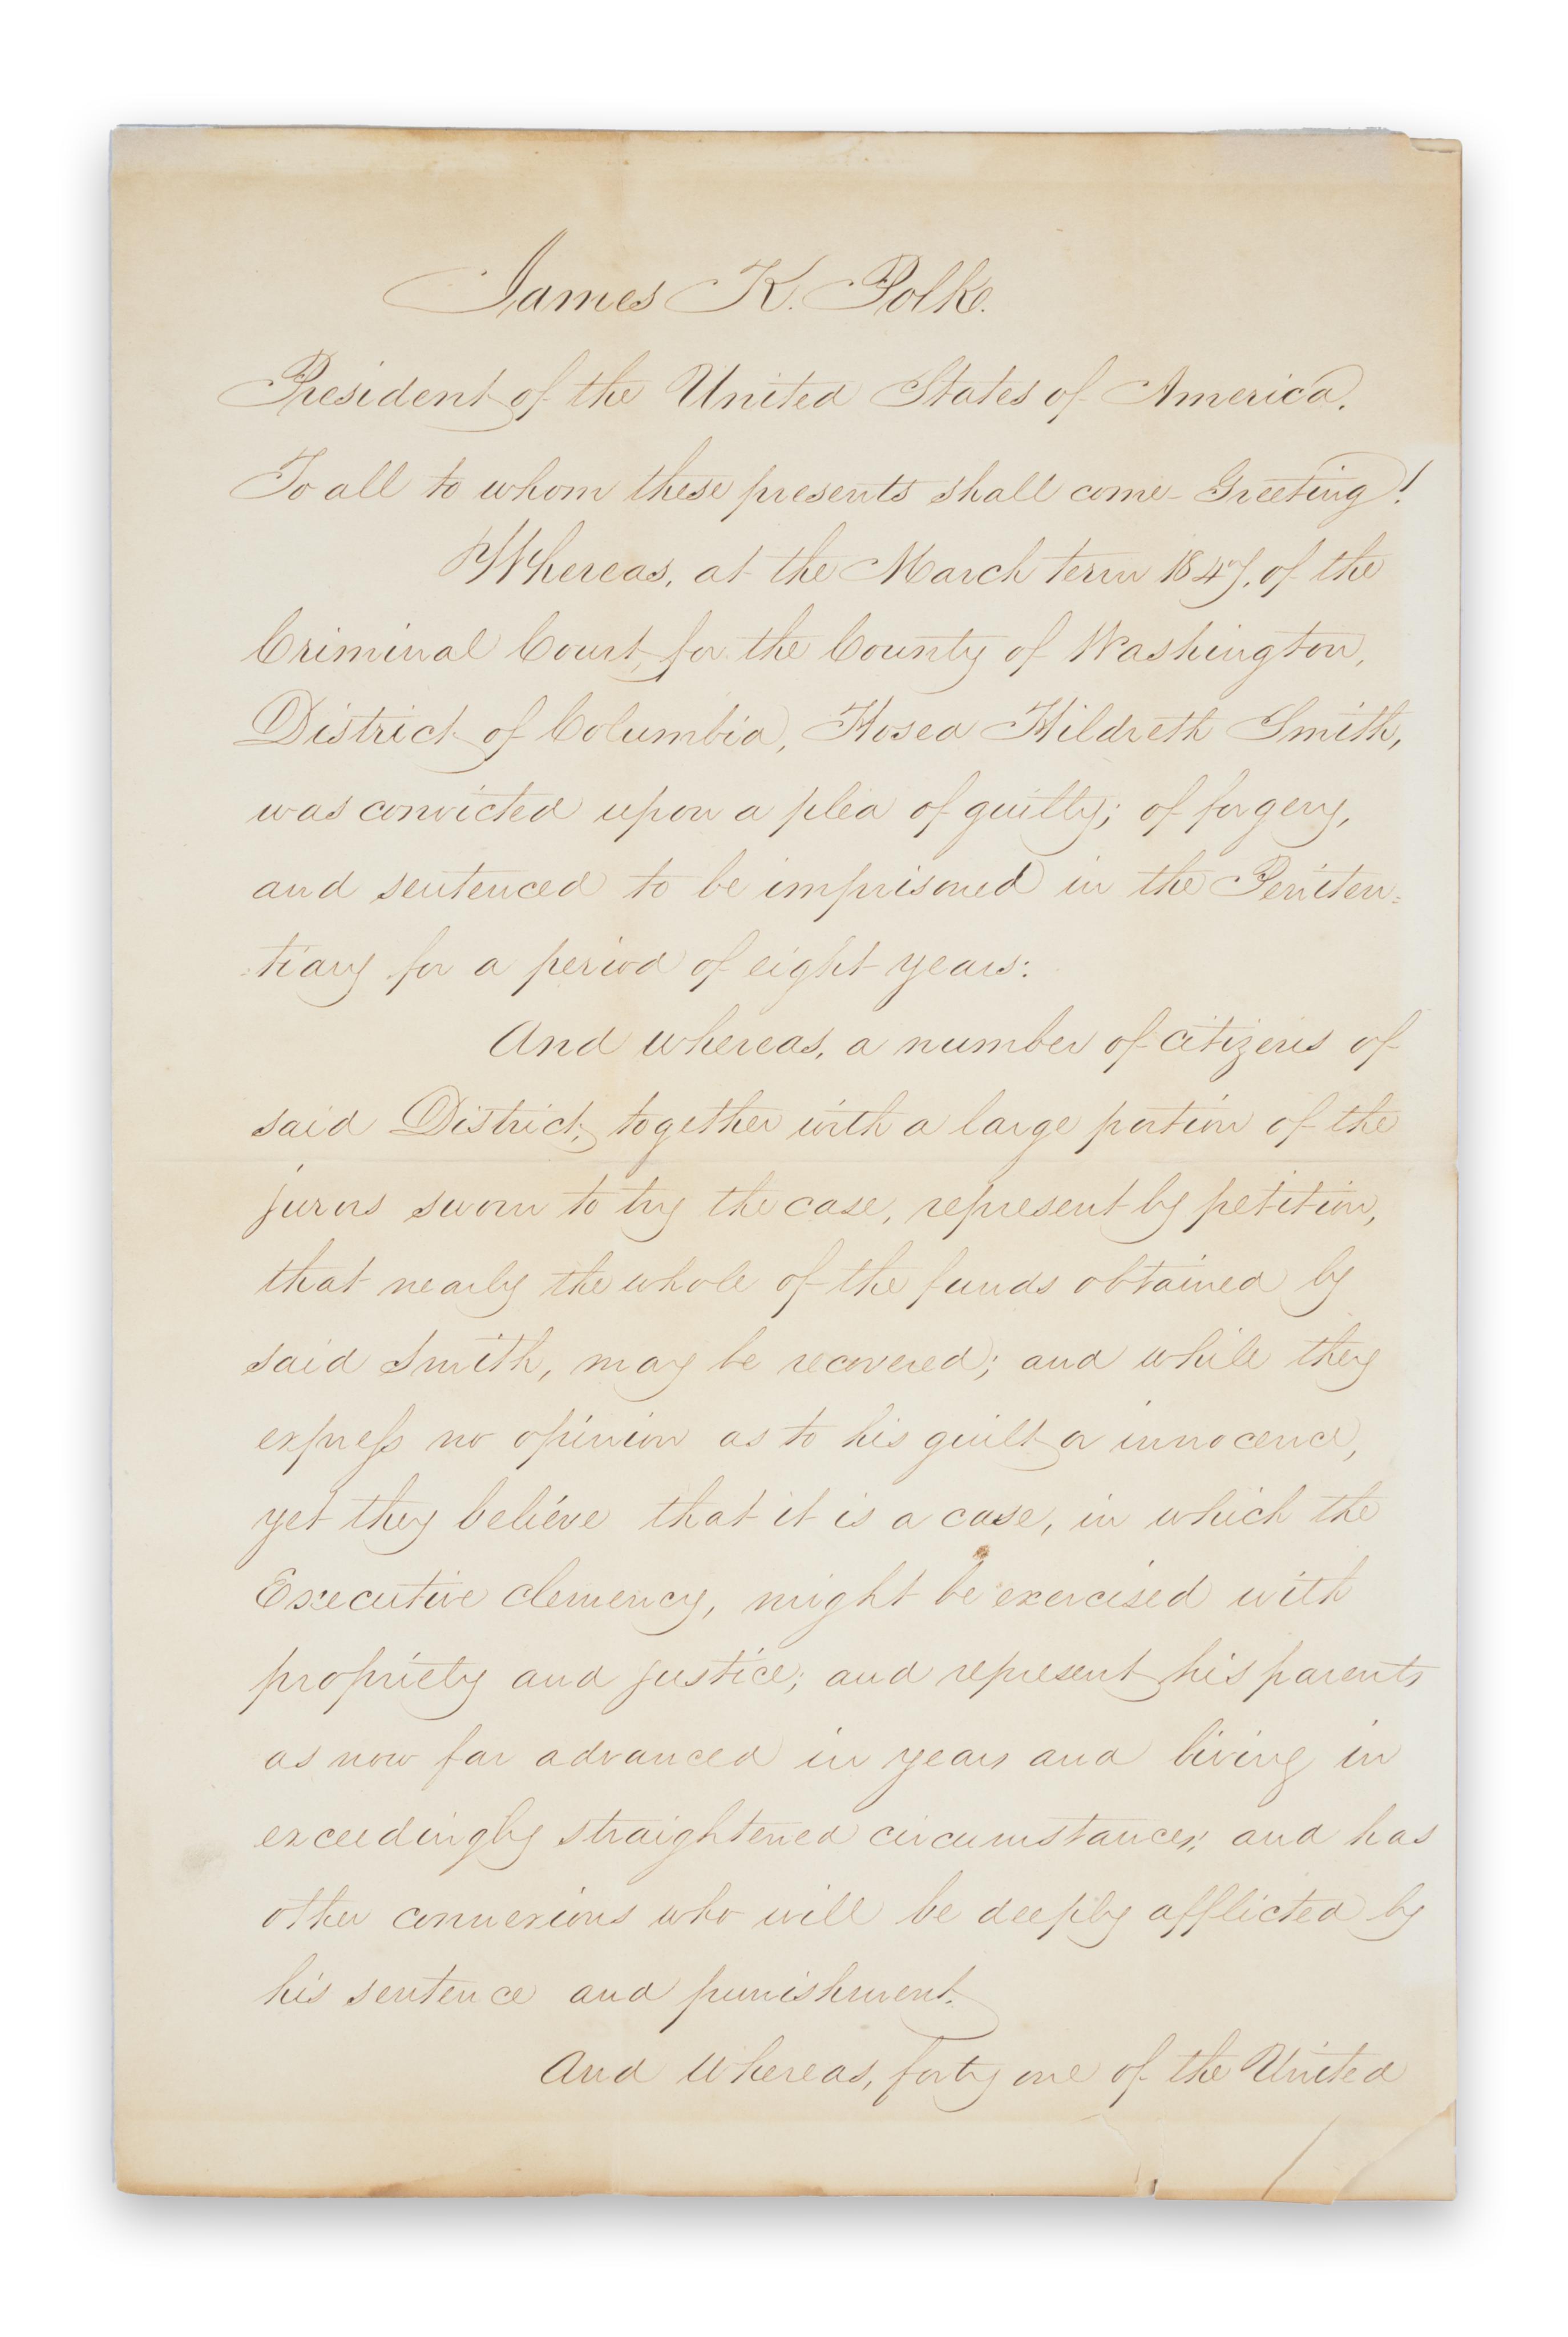 James K. Polk.
President of the United States of America.
To all to whom these presents shall come - Greeting!
Whereas, at the March term 1847. of the
Criminal Court, for the County of Washington,
District of Columbia, Hosea Hildreth Smith,
was convicted upon a plea of guilty; of forgery,
and sentenced to be imprisoned in the Peniten=
=tiary for a period of eight years:
And whereas, a number of citizens of
said District, together with a large portion of the
jurors sworn to try the case, represent by petition,
that nearly the whole of the funds obtained by
said Smith, may be recovered; and while they
express no opinion as to his guilt or innocence,
yet they believe that it is a case, in which the
Executive clemency, might be exercised with
propriety and justice; and represent his parents
as now far advanced in years and living in
exceedingly straightened circumstances; and has
other connexions who will be deeply afflicted by
his sentence and punishment.
And whereas, forty one of the United